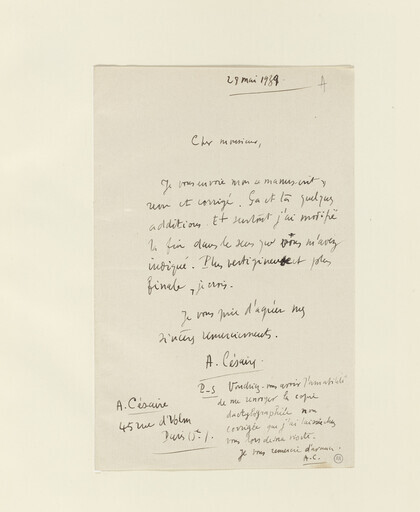 28 mai 1939
A
Cher monsieur,
Je vous envoie mon "manuscrit"
revu et corrigé. Ça et là quelques
additions. Et surtout j'ai modifié
la fin dans le sens que vous m'avez
indiqué. Plus vertigineuse et plus
finale, je crois.
Je vous prie d'agréer mes
sincères remerciements.
A. Césaire
P-S Voudriez-vous avoir l'amabilité
de me renvoyer la copie
dactylographiée non
corrigée que j'ai laissée chez
vous
Je vous remercie d'avance.
A.C.
A. Césaire
45 rue d'Ulm
Paris (5e).